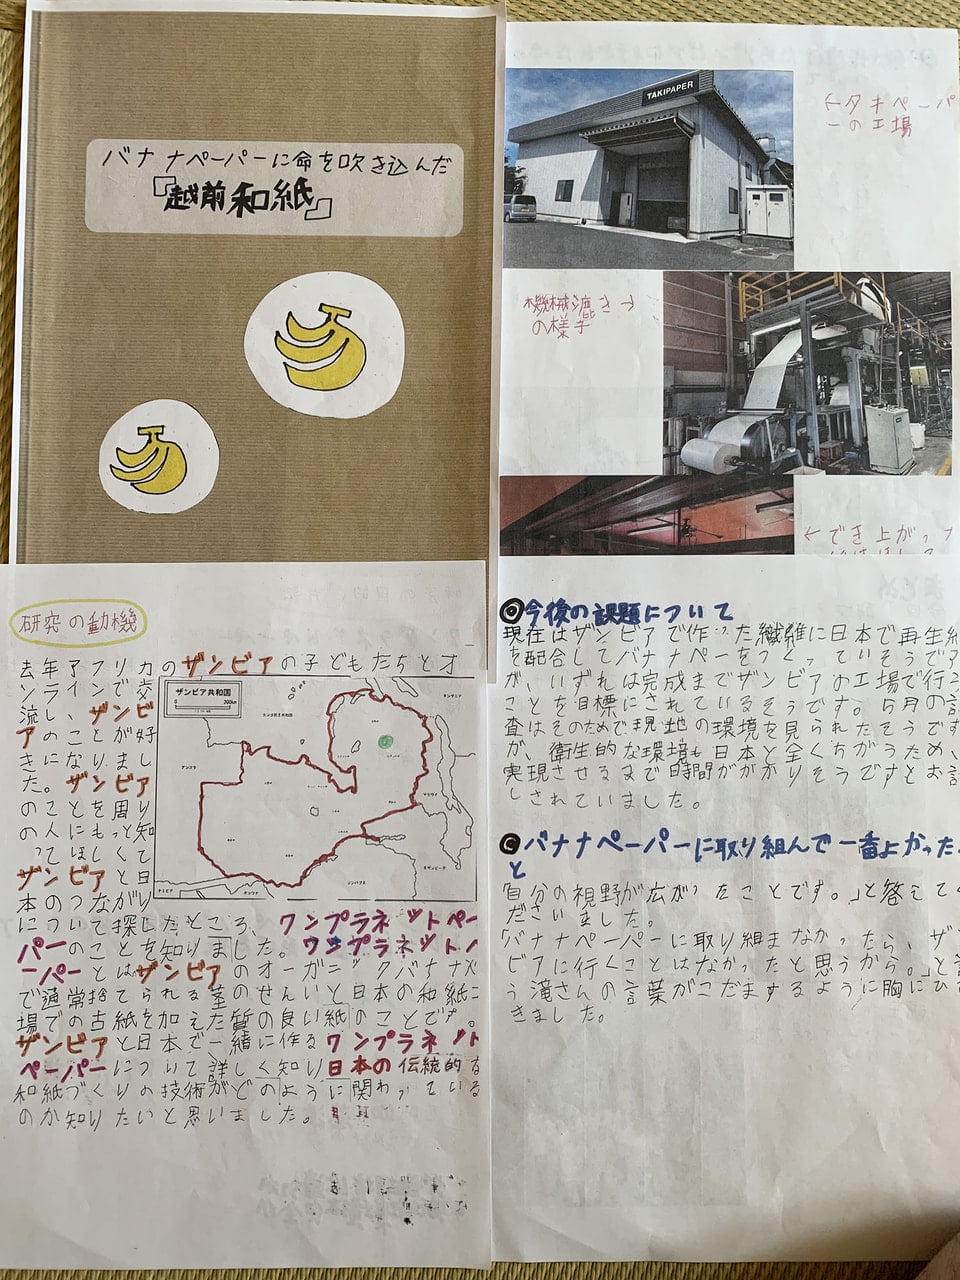 バナナペーパーに命を吹き込んだ
『越前和紙』
TAKIPAPER
←タキペーパ
ーの工場
機械漉き→
の様子
←でき上がった
研究の動機
去年アフリカのザンビアの子どもたちとオ
ンラインで交
流し、ザンビ
アのことが好
きになりまし
た。ザンビア
のことを周り
の人にもっと知
ってほしくて
ザンビアと日
本のつながり
について探したところ、ワンプラネットペー
パーのことを知りました。ワンプラネットパ
ーパーとはザンビアのオーガニックバナナ
で通常捨てられる茎のせんいと日本の和紙工
場での古紙を加えた質の良い紙のことです。
ザンビアと日本で一緒に作るワンプラネット
ペーパーについて詳しく知り日本の伝統的な
和紙づくりの技術がどのように関わっている
のか知りたいと思いました。
ザンビア共和国
0 200km
コンゴ民主共和国
タンザニア
アンゴラ
マラウイ
モザンビーク
ジンバブエ
ナミビア
ボツワナ
◎今後の課題について
現在はザンビアで作った繊維に日本で再生紙
を配合してバナナペーをつくっていそうです
が、いずれは完成までザンビアの工場で行う
ことを目標にされているそうです。5月の調
査はそのためで現地の環境を見られたそうです
が、衛生的な環境も日本と全くちがうため、
実現させるまで時間ががかりそうですとお話
しされていました。
◎バナナペーパーに取り組んで一番よかったこ
と
「自分の視野が広がったことです。」と答えてく
ださいました。
「バナナペーパーに取り組まなかったら、ザン
ビアに行くことはなかったと思うから。」と言
う滝さんの言葉がこだまするように胸にひび
きました。